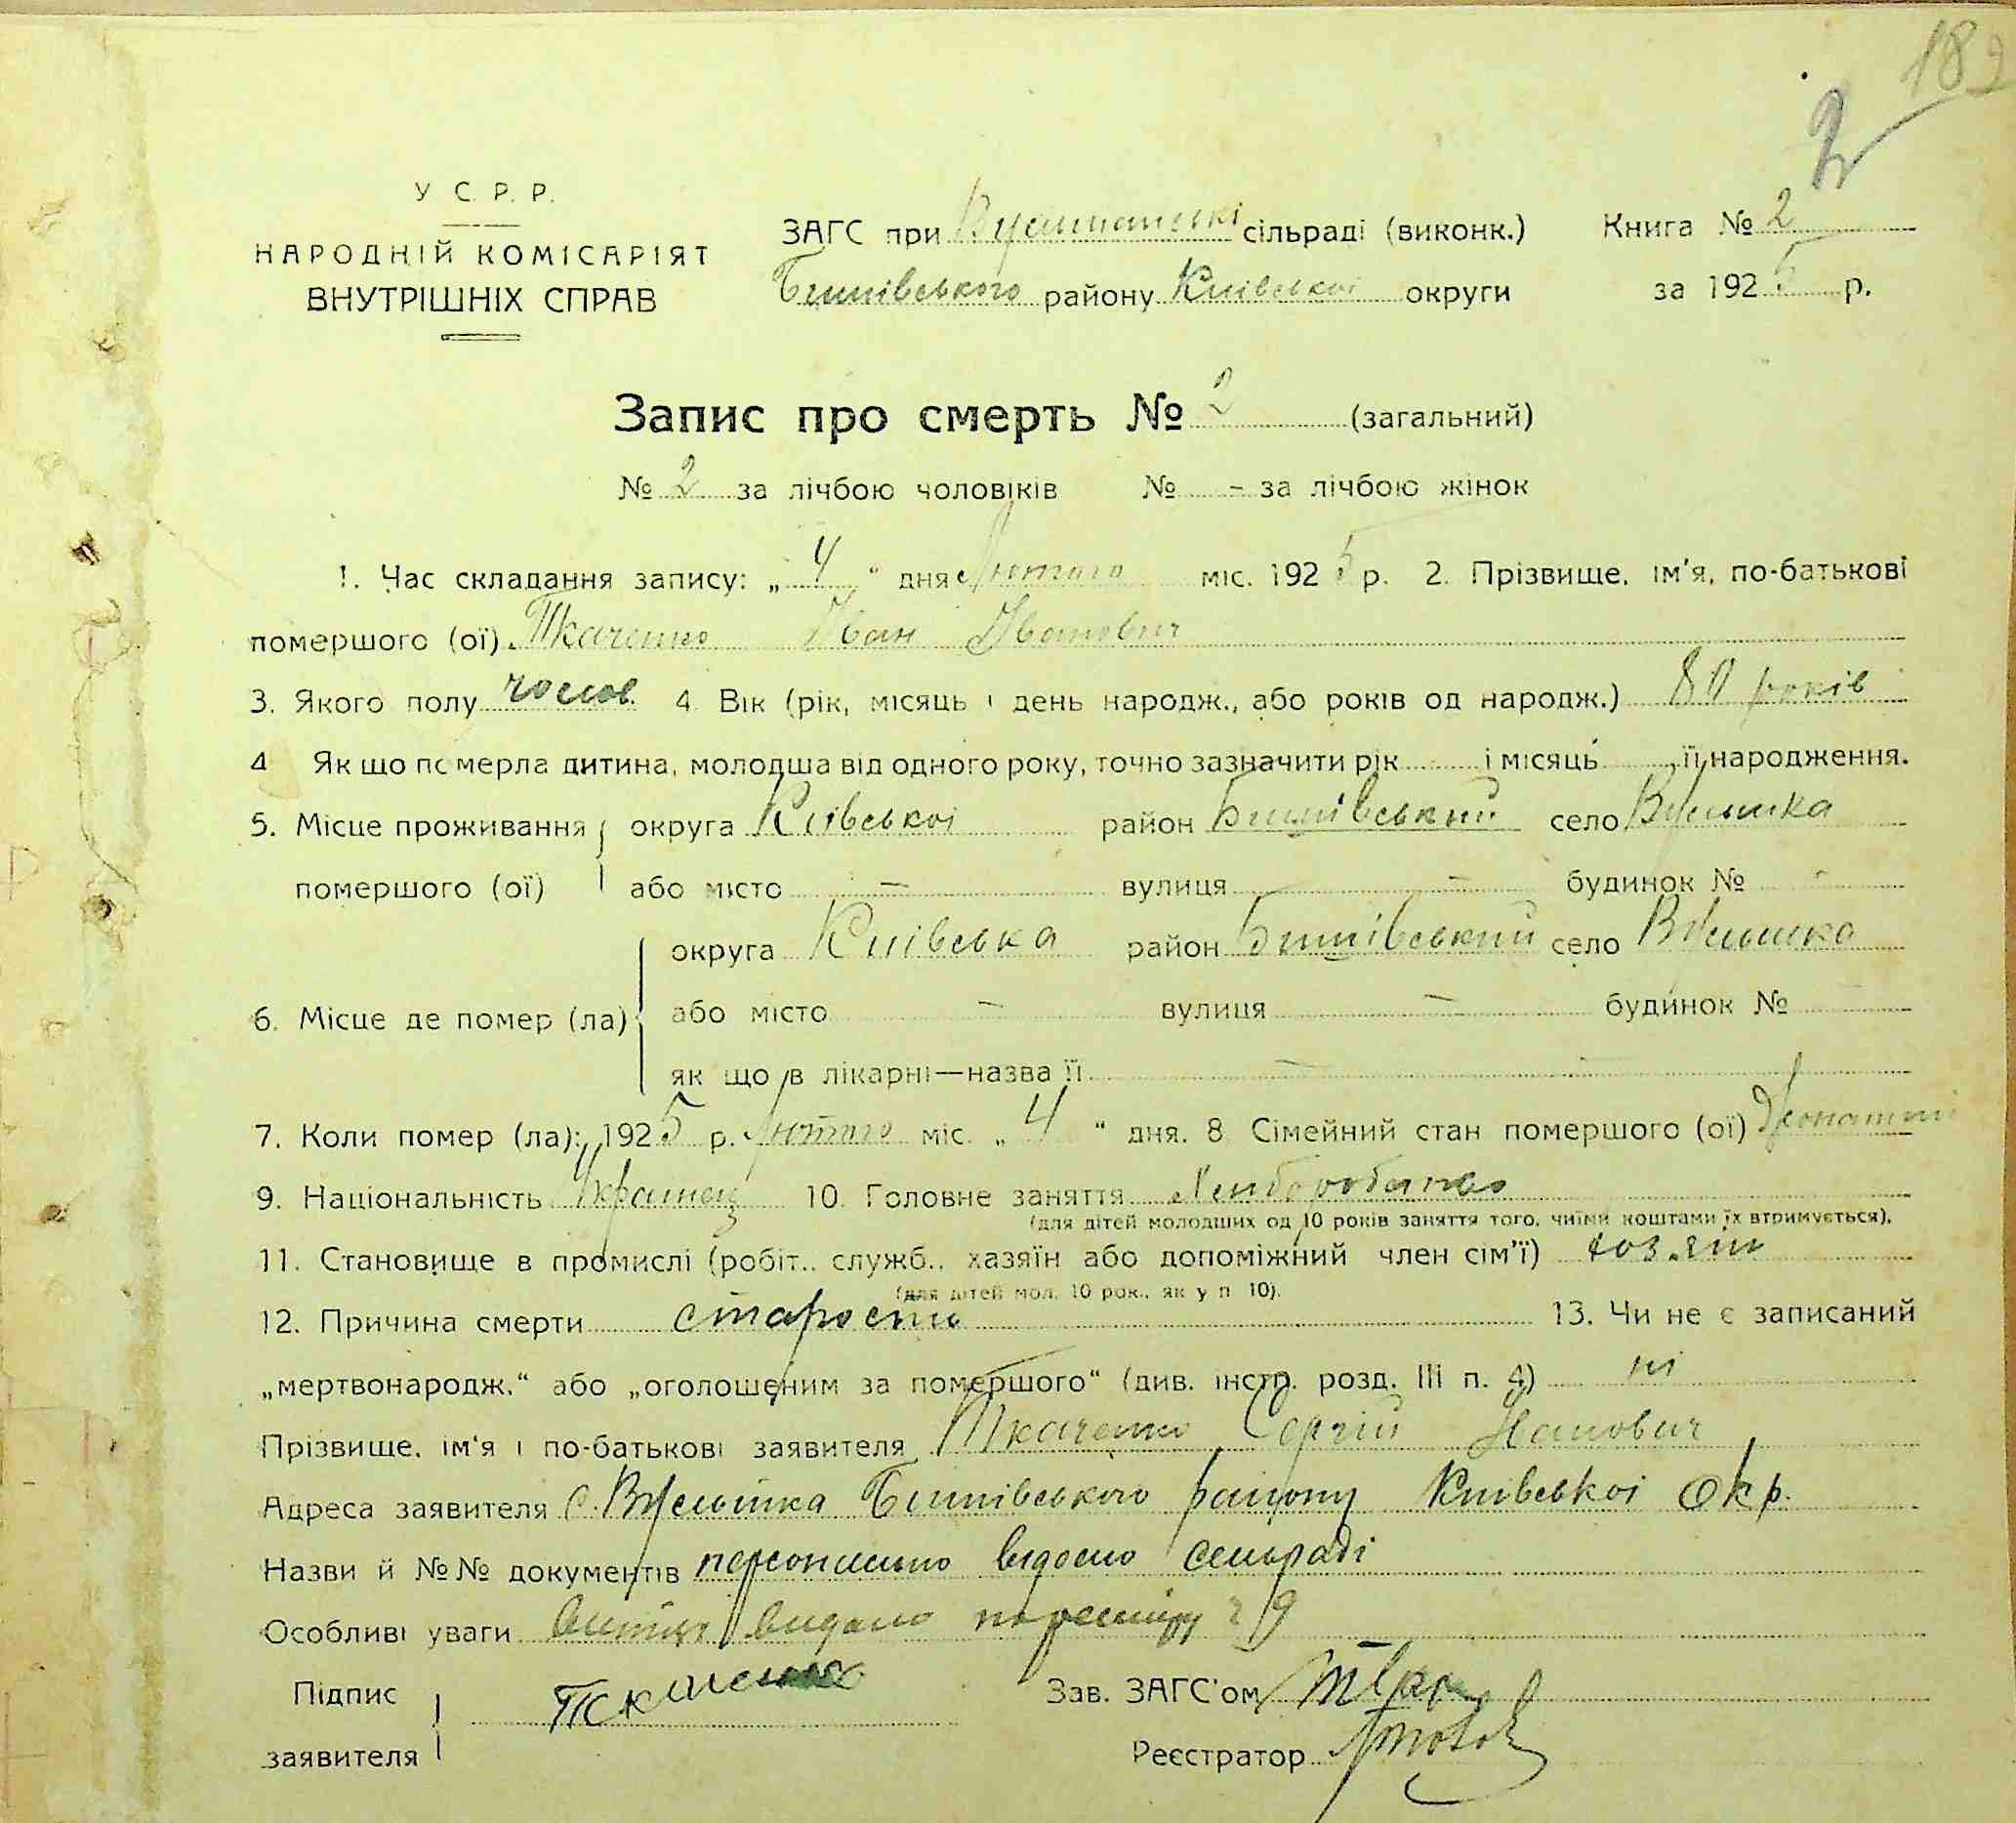 182
2
У С. Р. Р.
НАРОДНІЙ КОМІСАРІЯТ
ВНУТРІШНІХ СПРАВ
ЗАГС при сільраді (виконк.)
Бишівського району Київськоі округи
Книга № 2
за 1925 р.
Запис про смерть № 2 (загальний)
№ 2 за лічбою чоловіків № - за лічбою жінок
1. Час складання запису: „4“ дня Лютого міс. 1925 р. 2. Прізвище, ім'я, по-батькові
помершого (ої) Ткаченко Іван Іванович
3. Якого полу чолов. 4 Вік (рік, місяць і день народж., або років од народж.) 80 років
4 Як що померла дитина, молодша від одного року, точно зазначити рік і місяць її народження.
5. Місце проживання округа Київськоі район Бишівський село
помершого (ої) або місто — вулиця — будинок № -
округа Київська район Бишівський село
6. Місце де помер (ла) або місто — вулиця — будинок №
як що в лікарні—назва її — —
7. Коли помер (ла): 1925 р. Лютого міс. „4“ дня. 8 Сімейний стан помершого (ої) Жонатий
9. Національність Украінец 10. Головне заняття Хліборобство
(для дітей молодших од 10 років заняття того, чиїми коштами їх втримується).
11. Становище в промислі (робіт., служб., хазяїн або допоміжний член сім'ї) хозяін
(для дітей мол. 10 рок., як у п 10).
12. Причина смерти старость 13. Чи не є записаний
„мертвонародж.“ або „оголошеним за помершого“ (див. інстр. розд. III п. 4) ні
Прізвище, ім'я і по-батькові заявителя Ткаченко Сергій Іванович
Адреса заявителя с. Бишівського району Київськоі Окр.
Назви й №№ документів персонально відомо сельраді
Особливі уваги видано
Підпис
заявителя
Ткаченко
Зав. ЗАГС'ом
Реєстратор